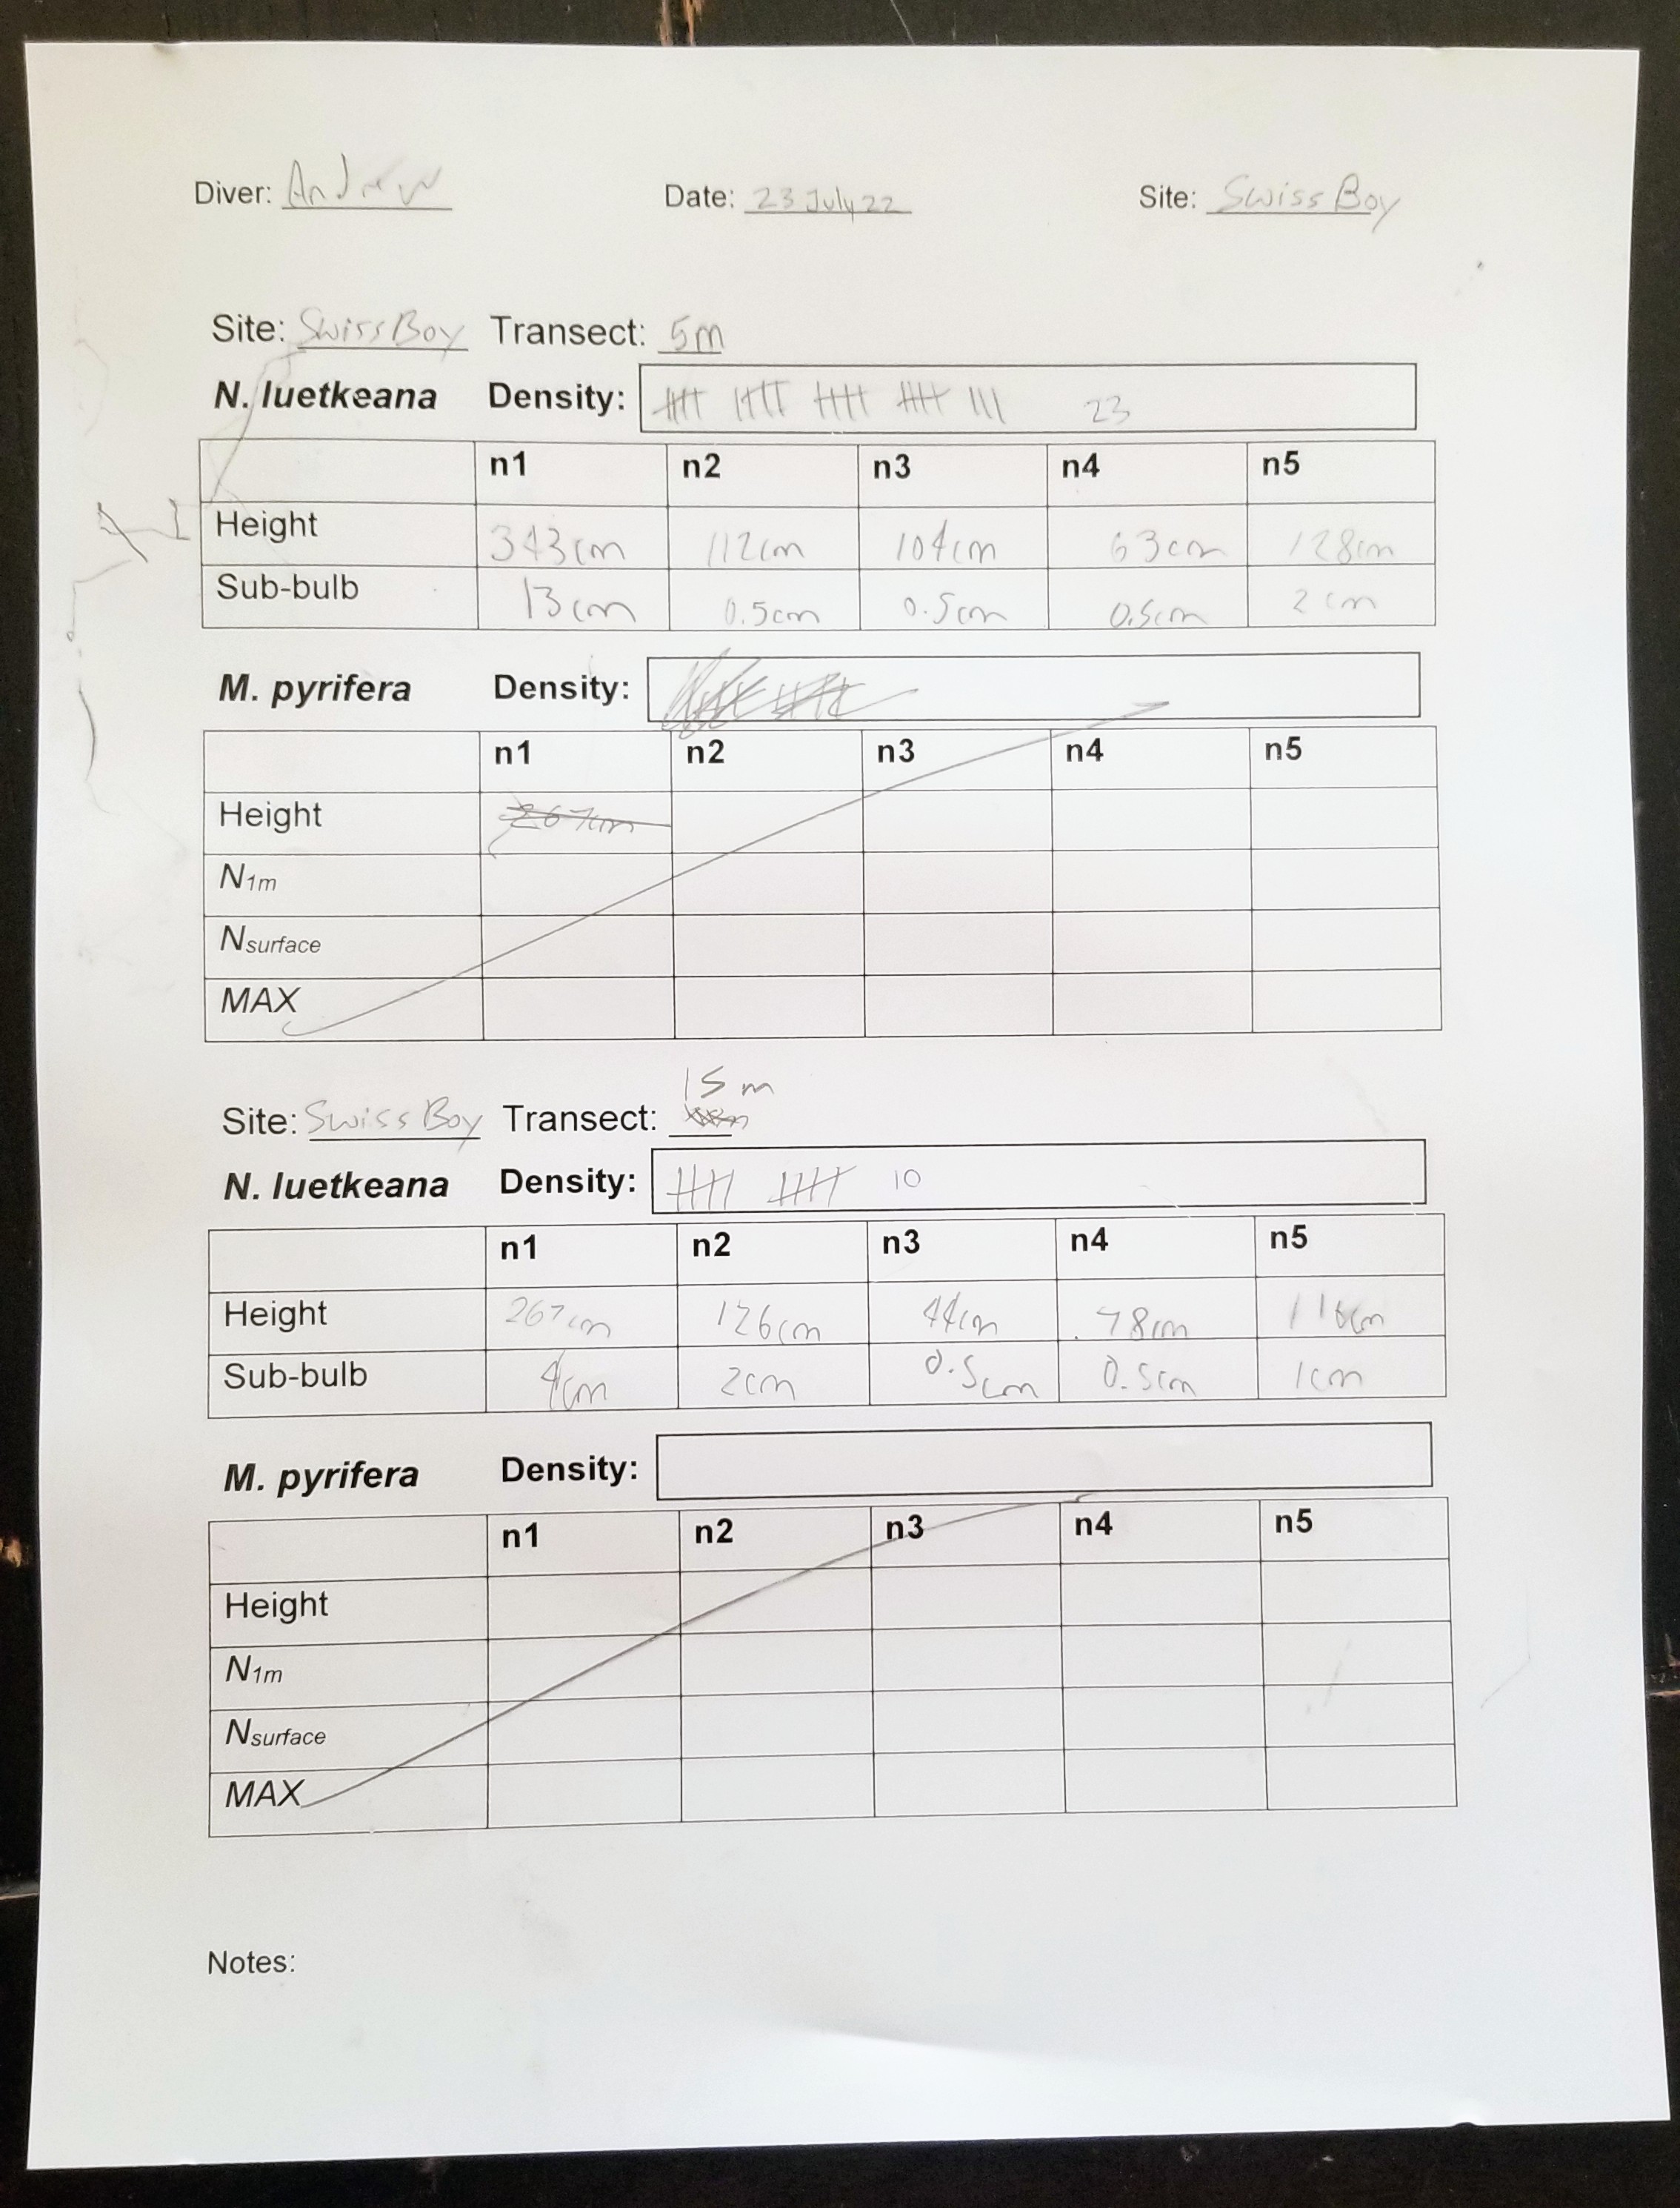 Diver: Andrew Date: 23 July 22 Site: Swiss Boy
Site: Swiss Boy Transect: 5m
N. luetkeana Density: 23
n1 n2 n3 n4 n5
Height 343cm 112cm 104cm 63cm 128cm
Sub-bulb 13cm 0.5cm 0.5cm 0.5cm 2cm
M. pyrifera Density:
n1 n2 n3 n4 n5
Height 267cm
N1m
Nsurface
MAX
15m
Site: Swiss Boy Transect:
N. luetkeana Density: 10
n1 n2 n3 n4 n5
Height 267cm 126cm 44cm 78cm 116cm
Sub-bulb 4cm 2cm 0.5cm 0.5cm 1cm
M. pyrifera Density:
n1 n2 n3 n4 n5
Height
N1m
Nsurface
MAX
Notes: